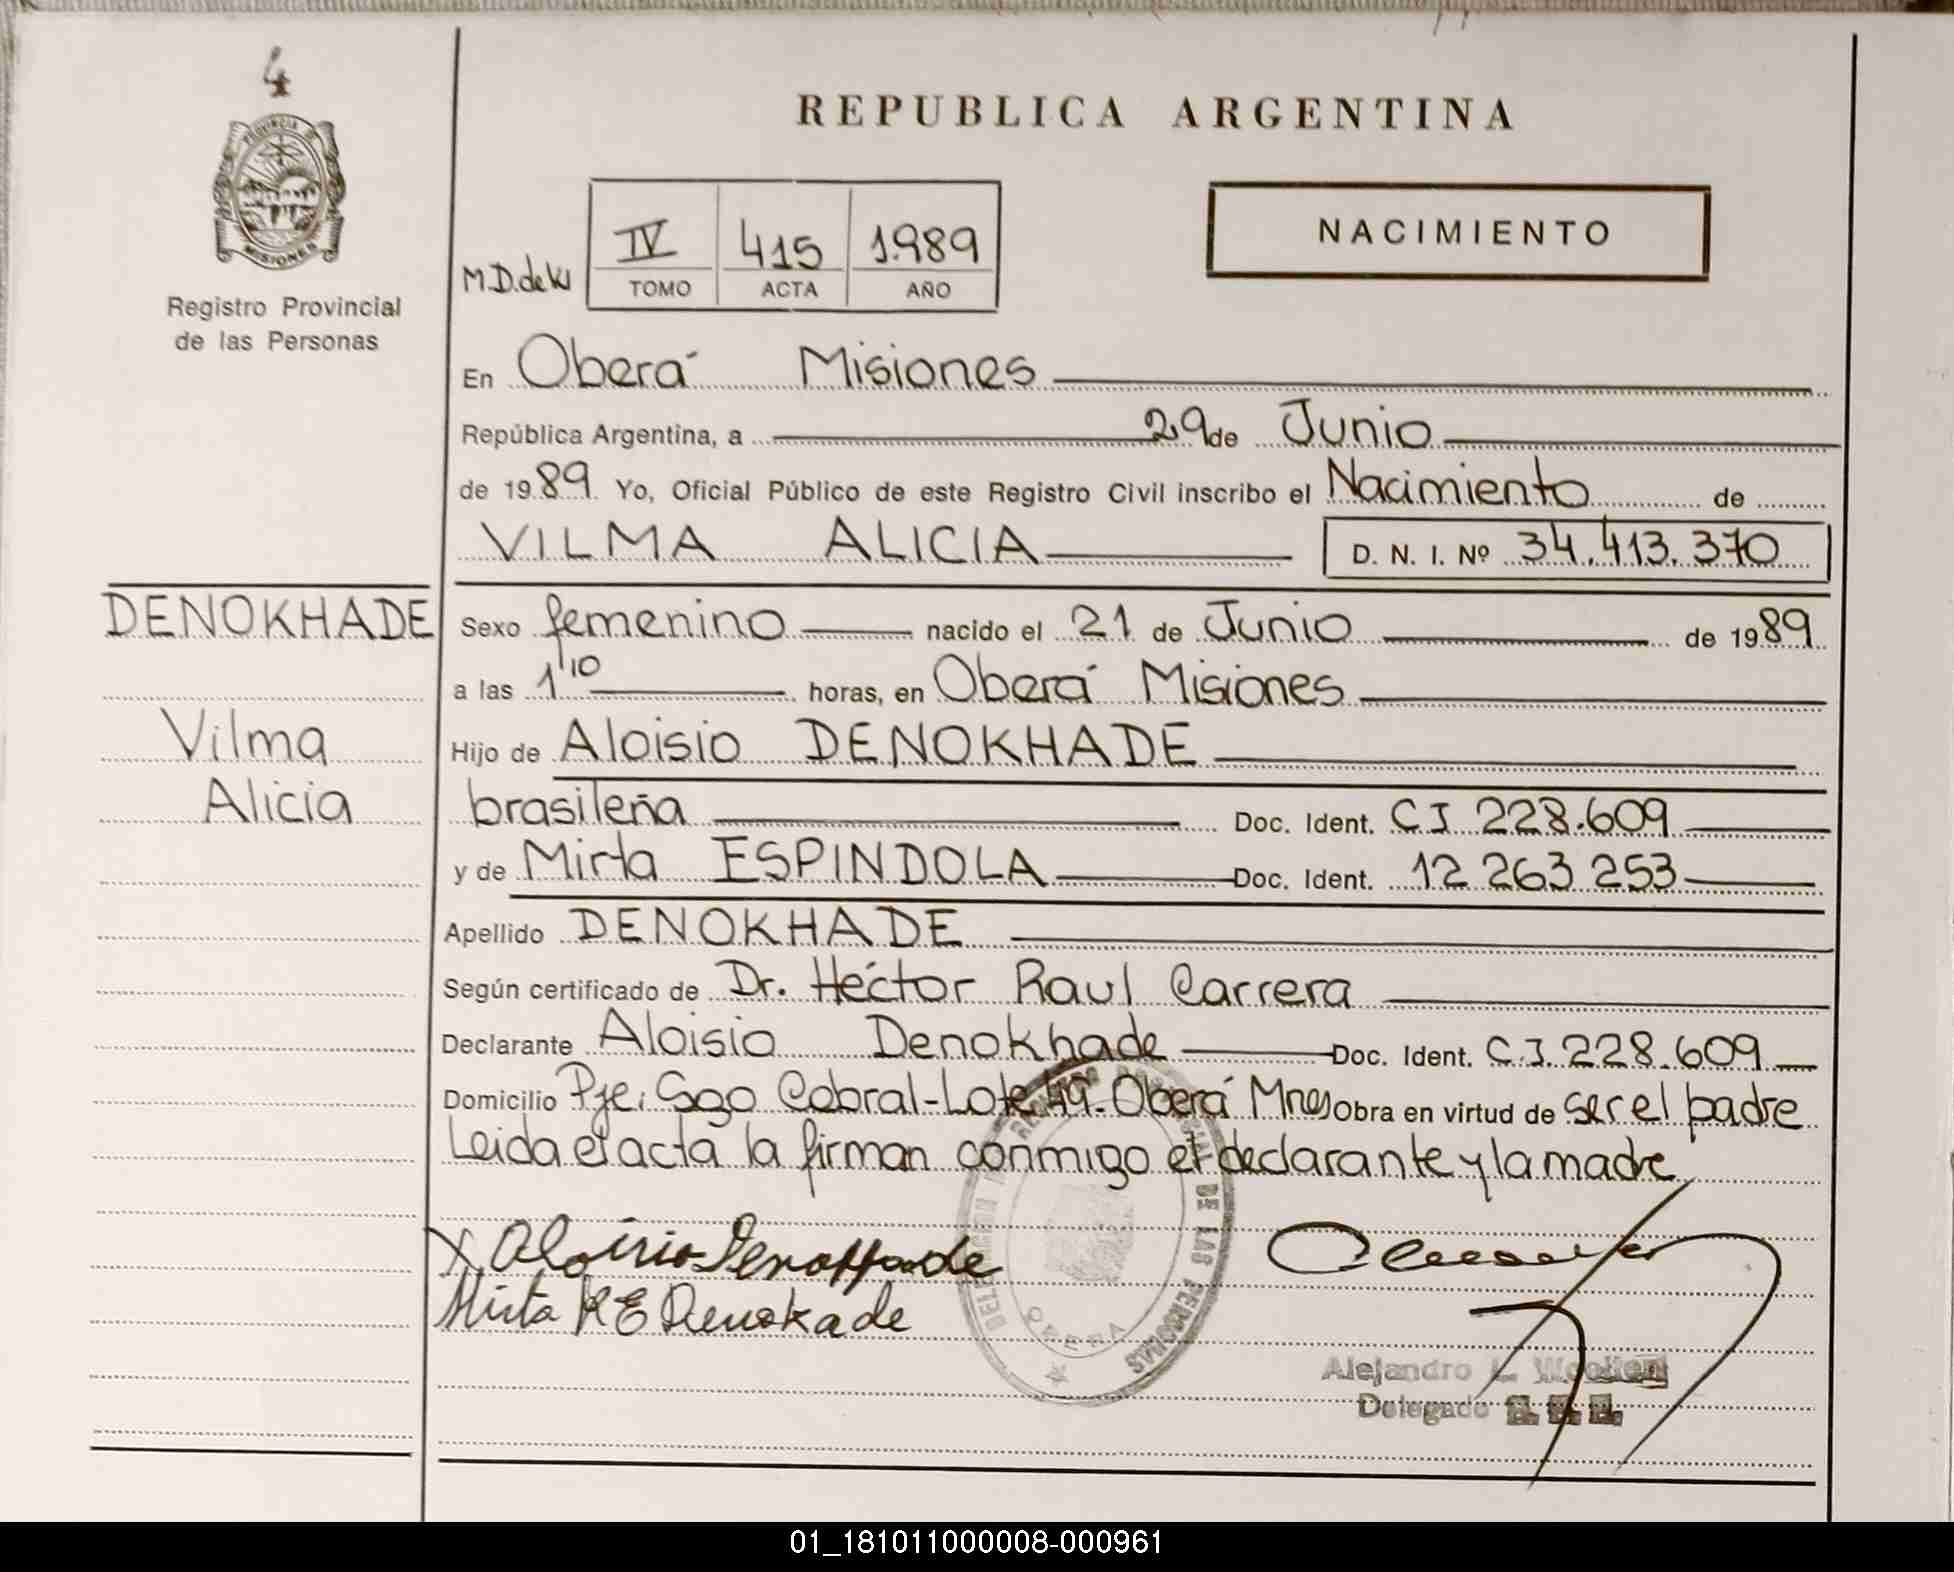 4
PROVINCIA DE
MISIONES
Registro Provincial
de las Personas
REPUBLICA ARGENTINA
NACIMIENTO
M.D.de K
IV 415 1.989
TOMO ACTA AÑO
En Oberá Misiones
República Argentina, a 29 de Junio
de 1989 Yo, Oficial Público de este Registro Civil inscribo el Nacimiento de
VILMA ALICIA D. N. I. Nº 34.413.370
DENOKHADE
Vilma
Alicia
Sexo femenino nacido el 21 de Junio de 1989
a las 1'10 horas, en Oberá Misiones
Hijo de Aloisio DENOKHADE
brasileña Doc. Ident. CI 228.609
y de Mirta ESPINDOLA Doc. Ident. 12 263 253
Apellido DENOKHADE
Según certificado de Dr. Héctor Raul Carrera
Declarante Aloisio Denokhade Doc. Ident. C.I. 228.609
Domicilio Pje. Sgo Cabral-Lote 49. Oberá Mnes Obra en virtud de ser el padre
Leida el acta la firman conmigo el declarante y la madre
X Aloisio Denokhade
Mirta R E Denokade
DELEGACION REGISTRO PROVINCIAL DE LAS PERSONAS
OBERA
Alejandro L.
Delegado
01_181011000008-000961